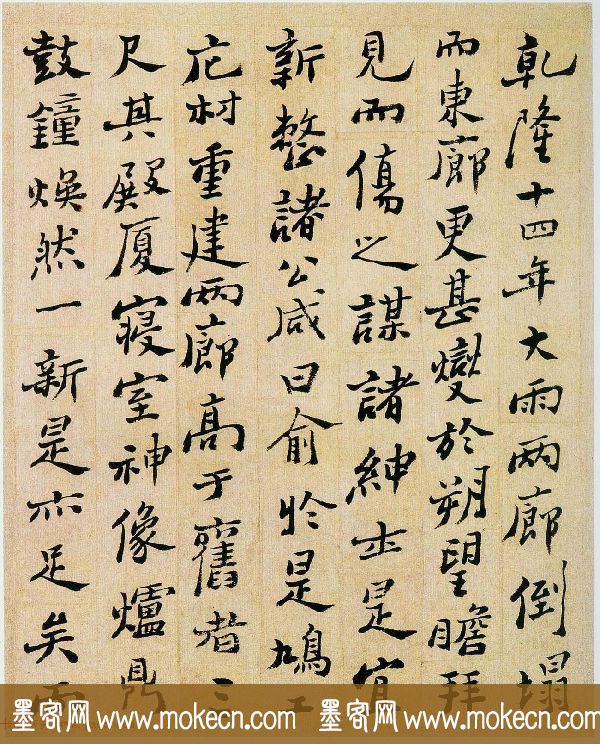 乾隆十四年大雨兩廊倒塌
而東廊更甚燮於朔望瞻拜
見而傷之謀諸紳士是宜
新整諸公咸曰俞於是鳩工
庀材重建兩廊高于舊者三
尺其殿厦寢室神像爐鼎
鼓鐘煥然一新是亦足矣
墨客网 www.mokecn.com 墨客网 www.mokecn.com